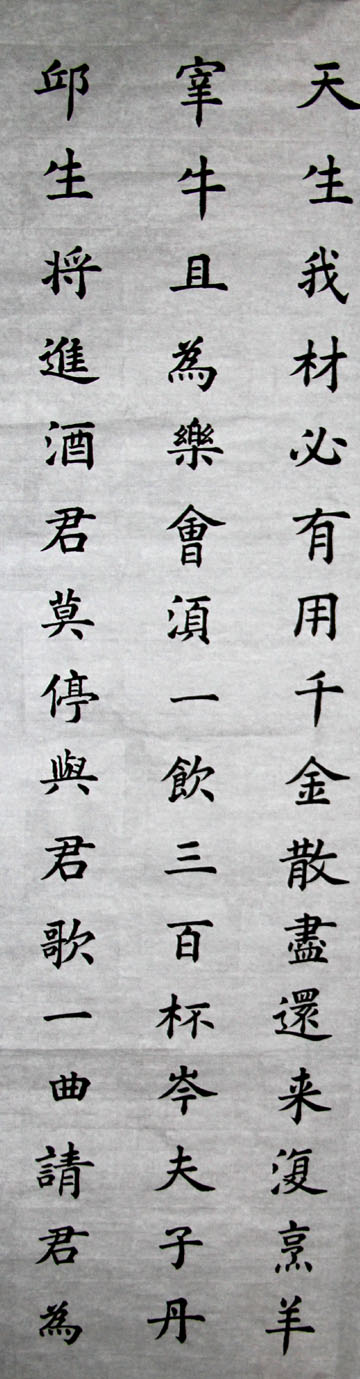 天生我材必有用千金散盡還来復烹羊
宰牛且為樂會須一飲三百杯岑夫子丹
邱生将進酒君莫停與君歌一曲請君為